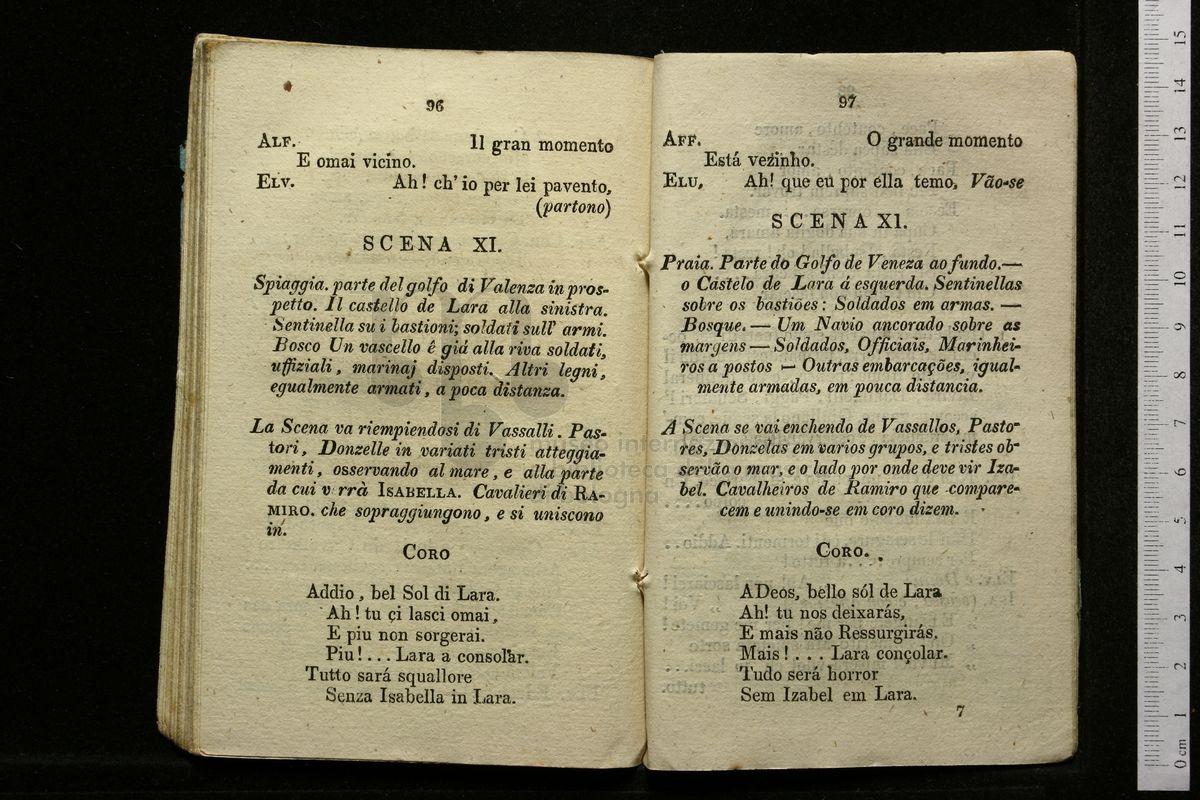 96
ALF. Il gran momento
E omai vicino.
ELV. Ah! ch' io per lei pavento,
(partono)
SCENA XI.
Spiaggia. parte del golfo di Valenza in pros-
petto. Il castello de Lara alla sinistra.
Sentinella su i bastioni; soldati sull' armi.
Bosco Un vascello é giá alla riva soldati,
uffiziali, marinaj disposti. Altri legni,
egualmente armati, a poca distanza.
La Scena va riempiendosi di Vassalli. Pas-
tori, Donzelle in variati tristi atteggia-
menti, osservando al mare, e alla parte
da cui v rrà ISABELLA. Cavalieri di RA-
MIRO. che sopraggiungono, e si uniscono
in.
CORO
Addio, bel Sol di Lara.
Ah! tu çi lasci omai,
E piu non sorgerai.
Piu!... Lara a consolar.
Tutto sará squallore
Senza Isabella in Lara.
97
AFF. O grande momento
Está vezinho.
ELU, Ah! que eu por ella temo, Vão-se
SCENA X1.
Praia. Parte do Golfo de Veneza ao fundo.—
o Castelo de Lara á esquerda. Sentinellas
sobre os bastiões: Soldados em armas. —
Bosque. — Um Navio ancorado sobre as
margens — Soldados, Officiais, Marinhei-
ros a postos — Outras embarcações, igual-
mente armadas, em pouca distancia.
A Scena se vai enchendo de Vassallos, Pasto-
res, Donzelas em varios grupos, e tristes ob-
servão o mar, e o lado por onde deve vir Iza-
bel. Cavalheiros de Ramiro que compare-
cem e unindo-se em coro dizem.
CORO.
ADeos, bello sól de Lara
Ah! tu nos deixarás,
E mais não Ressurgirás.
Mais!... Lara conçolar.
Tudo será horror
Sem Izabel em Lara.
7
0 cm 1 2 3 4 5 6 7 8 9 10 11 12 13 14 15